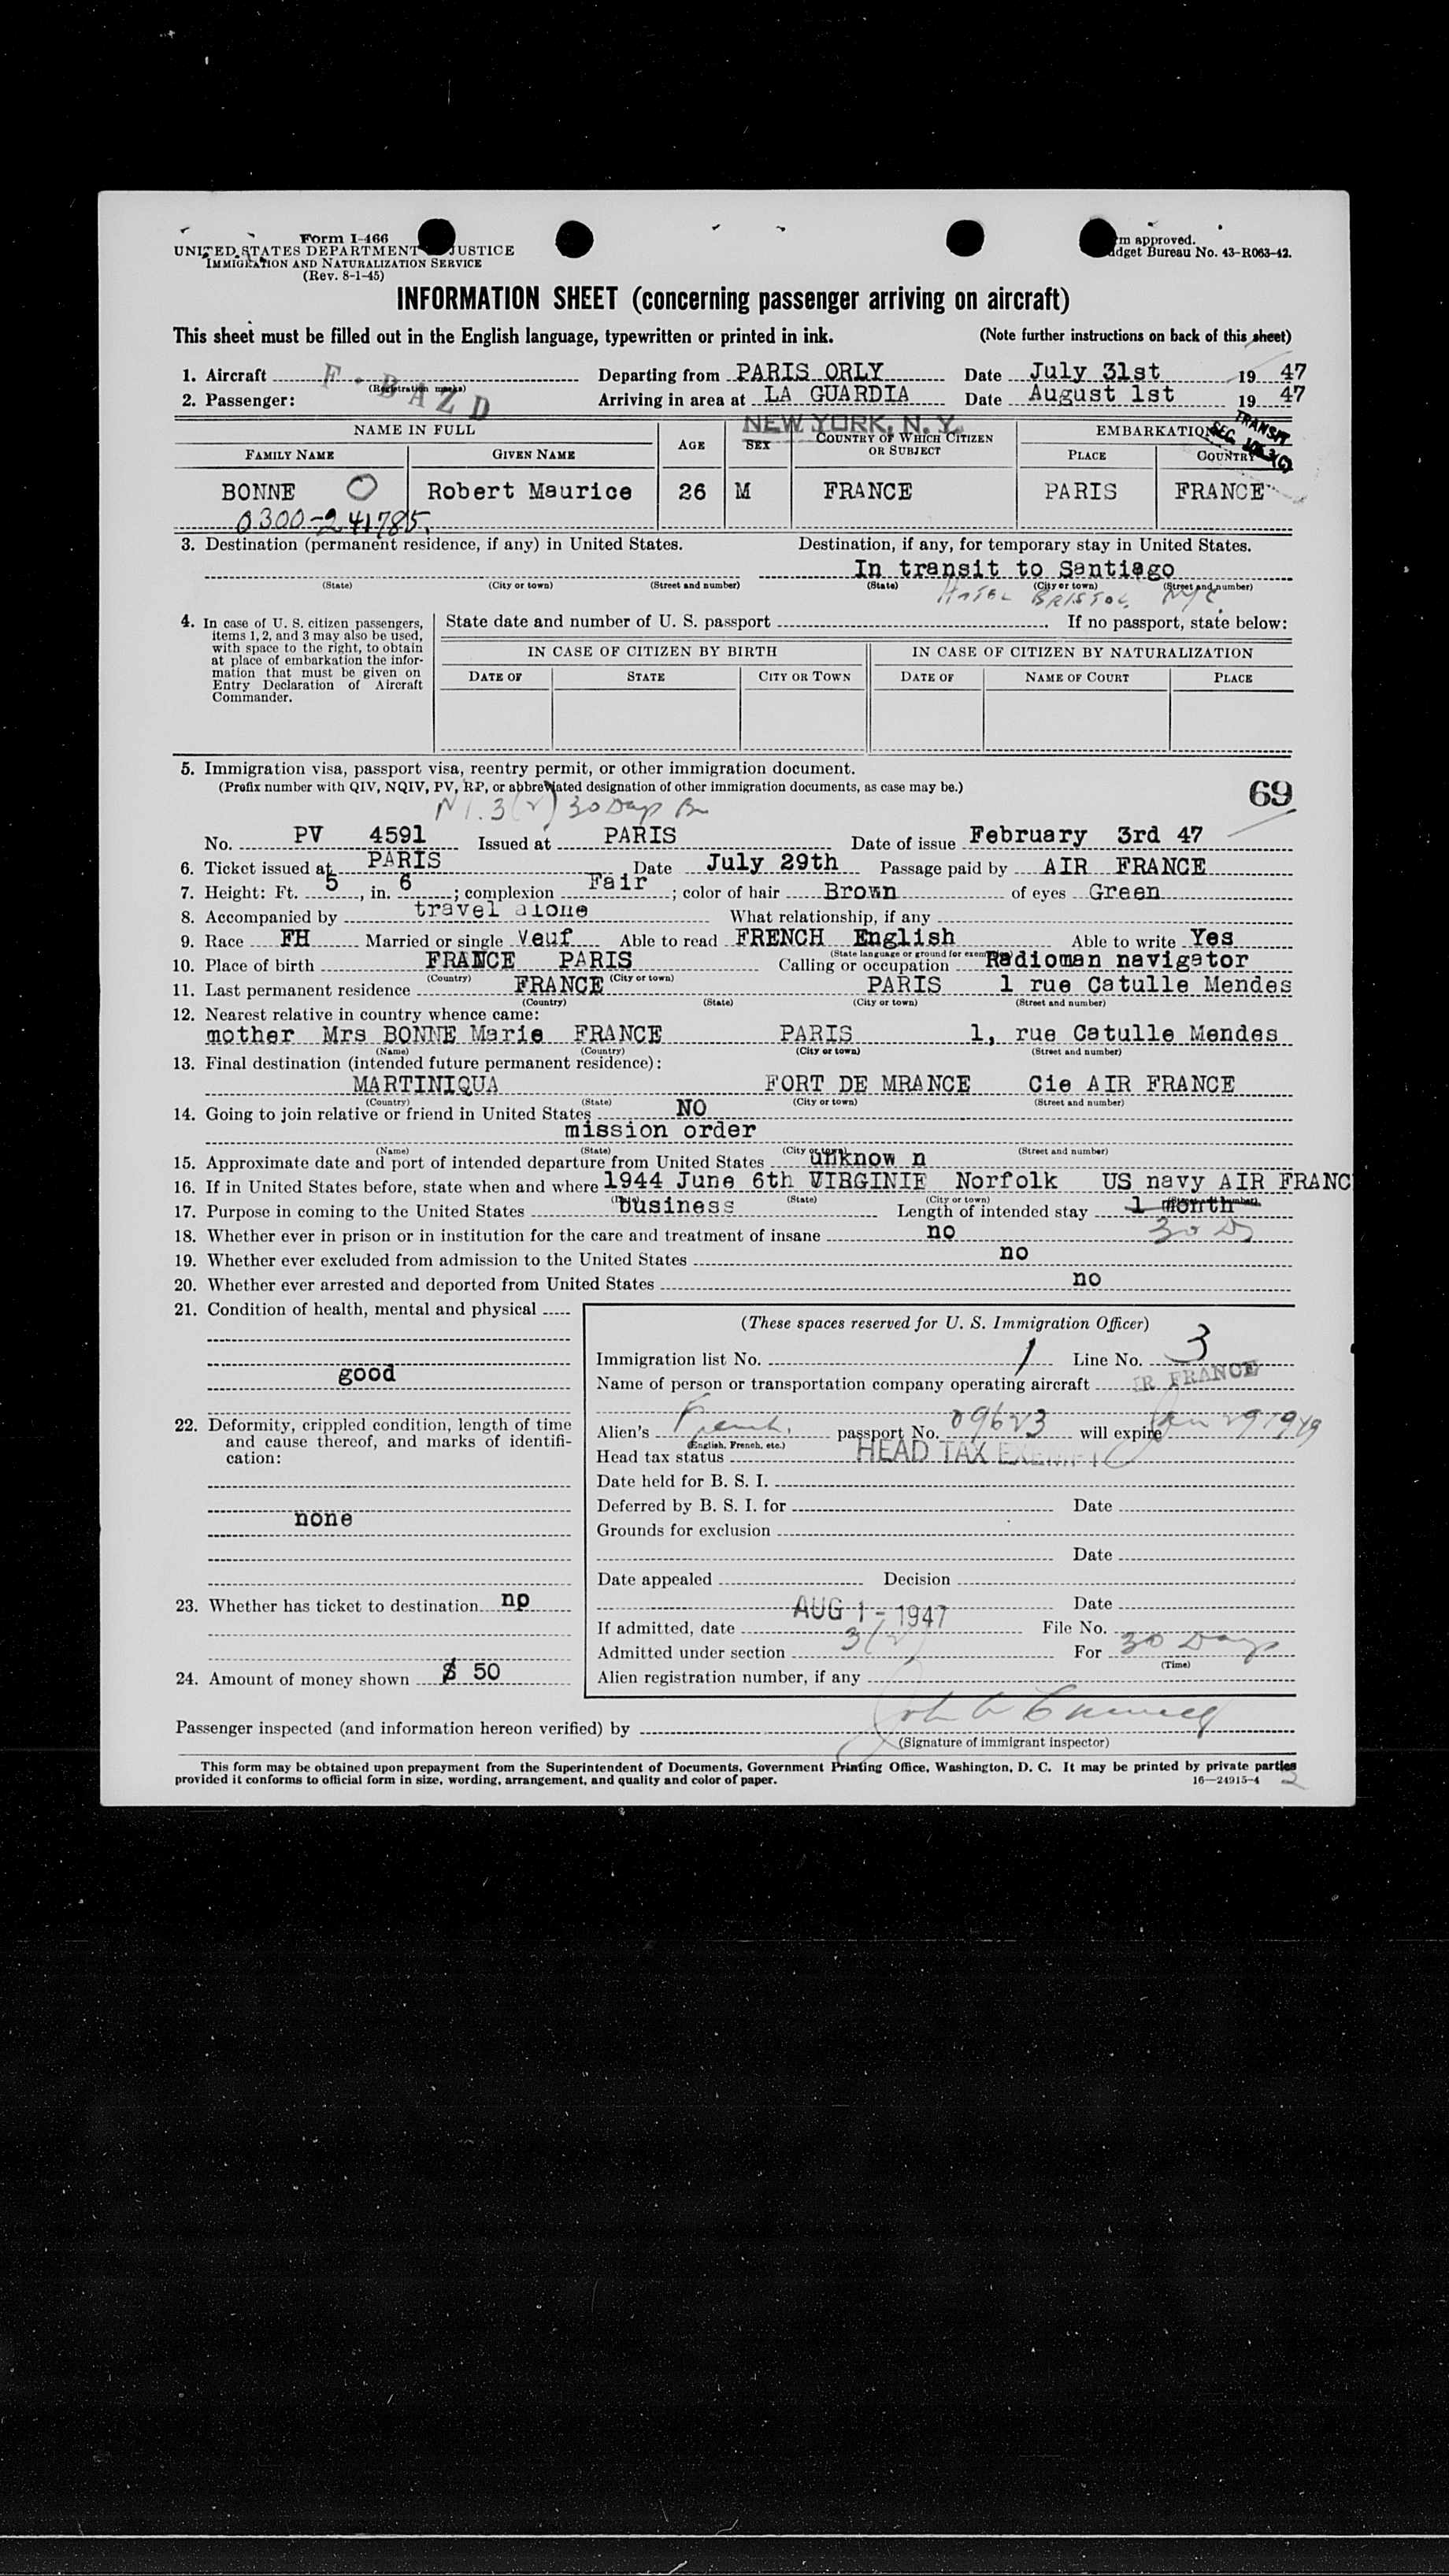 Form I-466
UNITED STATES DEPARTMENT JUSTICE
IMMIGRATION AND NATURALIZATION SERVICE
(Rev. 8-1-45)
m approved.
dget Bureau No. 43-R063-42.
INFORMATION SHEET (concerning passenger arriving on aircraft)
This sheet must be filled out in the English language, typewritten or printed in ink.
(Note further instructions on back of this sheet)
1. Aircraft F-BAZD Departing from PARIS ORLY Date July 31st 19 47
(Registration marks)
2. Passenger: Arriving in area at LA GUARDIA Date August 1st 19 47
NEW YORK, N. Y.
TRANSIT
SEC.
NAME IN FULL AGE SEX COUNTRY OF WHICH CITIZEN OR SUBJECT EMBARKATION
FAMILY NAME GIVEN NAME PLACE COUNTRY
BONNE O Robert Maurice 26 M FRANCE PARIS FRANCE
0300-241785.
3. Destination (permanent residence, if any) in United States. Destination, if any, for temporary stay in United States.
In transit to Santiago
(State) (City or town) (Street and number) (State) (City or town) (Street and number)
HOTEL BRISTOL, NYC.
4. In case of U. S. citizen passengers, items 1, 2, and 3 may also be used, with space to the right, to obtain at place of embarkation the information that must be given on Entry Declaration of Aircraft Commander.
State date and number of U. S. passport If no passport, state below:
IN CASE OF CITIZEN BY BIRTH IN CASE OF CITIZEN BY NATURALIZATION
DATE OF STATE CITY OR TOWN DATE OF NAME OF COURT PLACE
5. Immigration visa, passport visa, reentry permit, or other immigration document.
(Prefix number with QIV, NQIV, PV, RP, or abbreviated designation of other immigration documents, as case may be.)
69
3(2) 30 Days
No. PV 4591 Issued at PARIS Date of issue February 3rd 47
6. Ticket issued at PARIS Date July 29th Passage paid by AIR FRANCE
7. Height: Ft. 5, in. 6; complexion Fair; color of hair Brown of eyes Green
8. Accompanied by travel alone What relationship, if any
9. Race FH Married or single Veuf Able to read FRENCH English Able to write Yes
(State language or ground for exemption)
10. Place of birth FRANCE PARIS Calling or occupation Radioman navigator
(Country) (City or town)
11. Last permanent residence FRANCE PARIS 1 rue Catulle Mendes
(Country) (State) (City or town) (Street and number)
12. Nearest relative in country whence came:
mother Mrs BONNE Marie FRANCE PARIS 1, rue Catulle Mendes
(Name) (Country) (City or town) (Street and number)
13. Final destination (intended future permanent residence):
MARTINIQUA FORT DE MRANCE Cie AIR FRANCE
(Country) (State) (City or town) (Street and number)
14. Going to join relative or friend in United States NO
mission order
(Name) (State) (City or town) (Street and number)
15. Approximate date and port of intended departure from United States unknow n
16. If in United States before, state when and where 1944 June 6th VIRGINIE Norfolk US navy AIR FRANC
(Date) (State) (City or town) (Street and number)
17. Purpose in coming to the United States business Length of intended stay 1 month
30 D
18. Whether ever in prison or in institution for the care and treatment of insane no
19. Whether ever excluded from admission to the United States no
20. Whether ever arrested and deported from United States no
21. Condition of health, mental and physical
good
22. Deformity, crippled condition, length of time and cause thereof, and marks of identification:
none
23. Whether has ticket to destination np
24. Amount of money shown $ 50
(These spaces reserved for U. S. Immigration Officer)
Immigration list No. 1 Line No. 3
Name of person or transportation company operating aircraft IR FRANCE
Alien's French. passport No. 09623 will expire Jan 29 1949
(English, French, etc.)
Head tax status HEAD TAX EXEMPT
Date held for B. S. I.
Deferred by B. S. I. for Date
Grounds for exclusion
Date
Date appealed Decision
Date
If admitted, date AUG 1 - 1947 File No.
Admitted under section 3(2) For 30 Days
(Time)
Alien registration number, if any
Passenger inspected (and information hereon verified) by
(Signature of immigrant inspector)
This form may be obtained upon prepayment from the Superintendent of Documents, Government Printing Office, Washington, D. C. It may be printed by private parties
provided it conforms to official form in size, wording, arrangement, and quality and color of paper. 16—24915-4